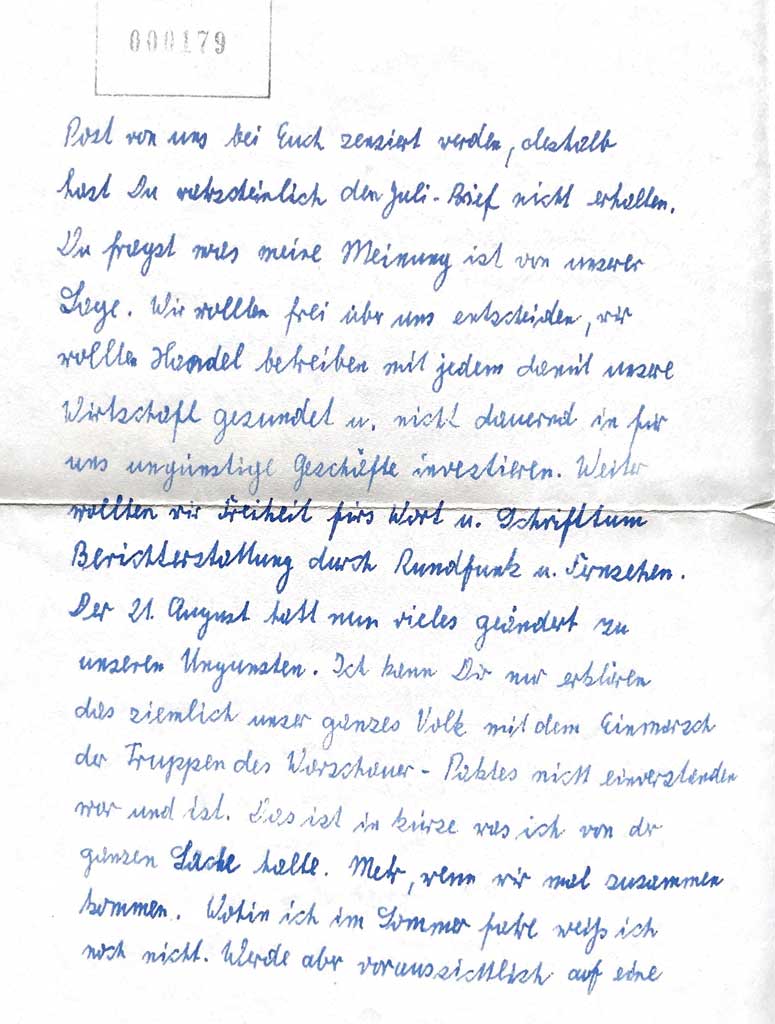 000179
Post von uns bei Euch zensiert werden, deshalb
hast Du warscheinlich den Juli-Brief nicht erhalten.
Du fragst was meine Meinung ist von unserer
Lage. Wir wollten frei über uns entscheiden, wir
wollten Handel betreiben mit jedem damit unsere
Wirtschaft gesundet u. nicht dauernd in für
uns ungünstige Geschäfte investieren. Weiter
wollten wir Freiheit fürs Wort u. Schrifttum
Berichterstattung durch Rundfunk u. Fernsehen.
Der 21. August hatt nun vieles geändert zu
unseren Ungunsten. Ich kann Dir nur erklären
das ziemlich unser ganzes Volk mit dem Einmarsch
der Truppen des Warschauer-Paktes nicht einverstanden
war und ist. Das ist in kürze was ich von der
ganzen Sache halte. Mehr, wenn wir mal zusammen
kommen. Wohin ich im Sommer fahre weiß ich
noch nicht. Werde aber voraussichtlich auf eine